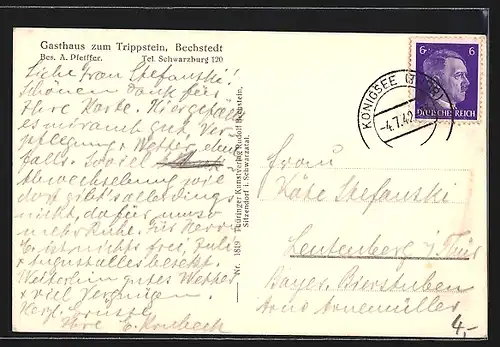 Gasthaus zum Trippstein, Bechstedt
Bes. A. Pfeiffer. Tel. Schwarzburg 120
Liebe Frau Stefanski!
Schönen Dank für
Ihre Karte. Hier gefällt
es mir ganz gut, Ver-
pflegung + Wetter, eben-
falls. Soviel
Abwechselung wie
dort gibt's allerdings
nicht, dafür umso
mehr Ruhe. Für Herrn
E. ist nichts frei, Juli
+ August alles besetzt.
Weiterhin gutes Wetter
+ viel Vergnügen.
Herzl. Grüsse
Ihre E.
Nr. 1819 Thüringer Kunstverlag Rudolf Bechstein,
Sitzendorf i. Schwarzatal.
6 6
DEUTSCHES REICH
KÖNIGSEE (THÜR)
-4.7.42
Frau
Käte Stefanski
Leutenberg i/Thür
Bayer. Bierstuben
Arno Arnemüller
4,-